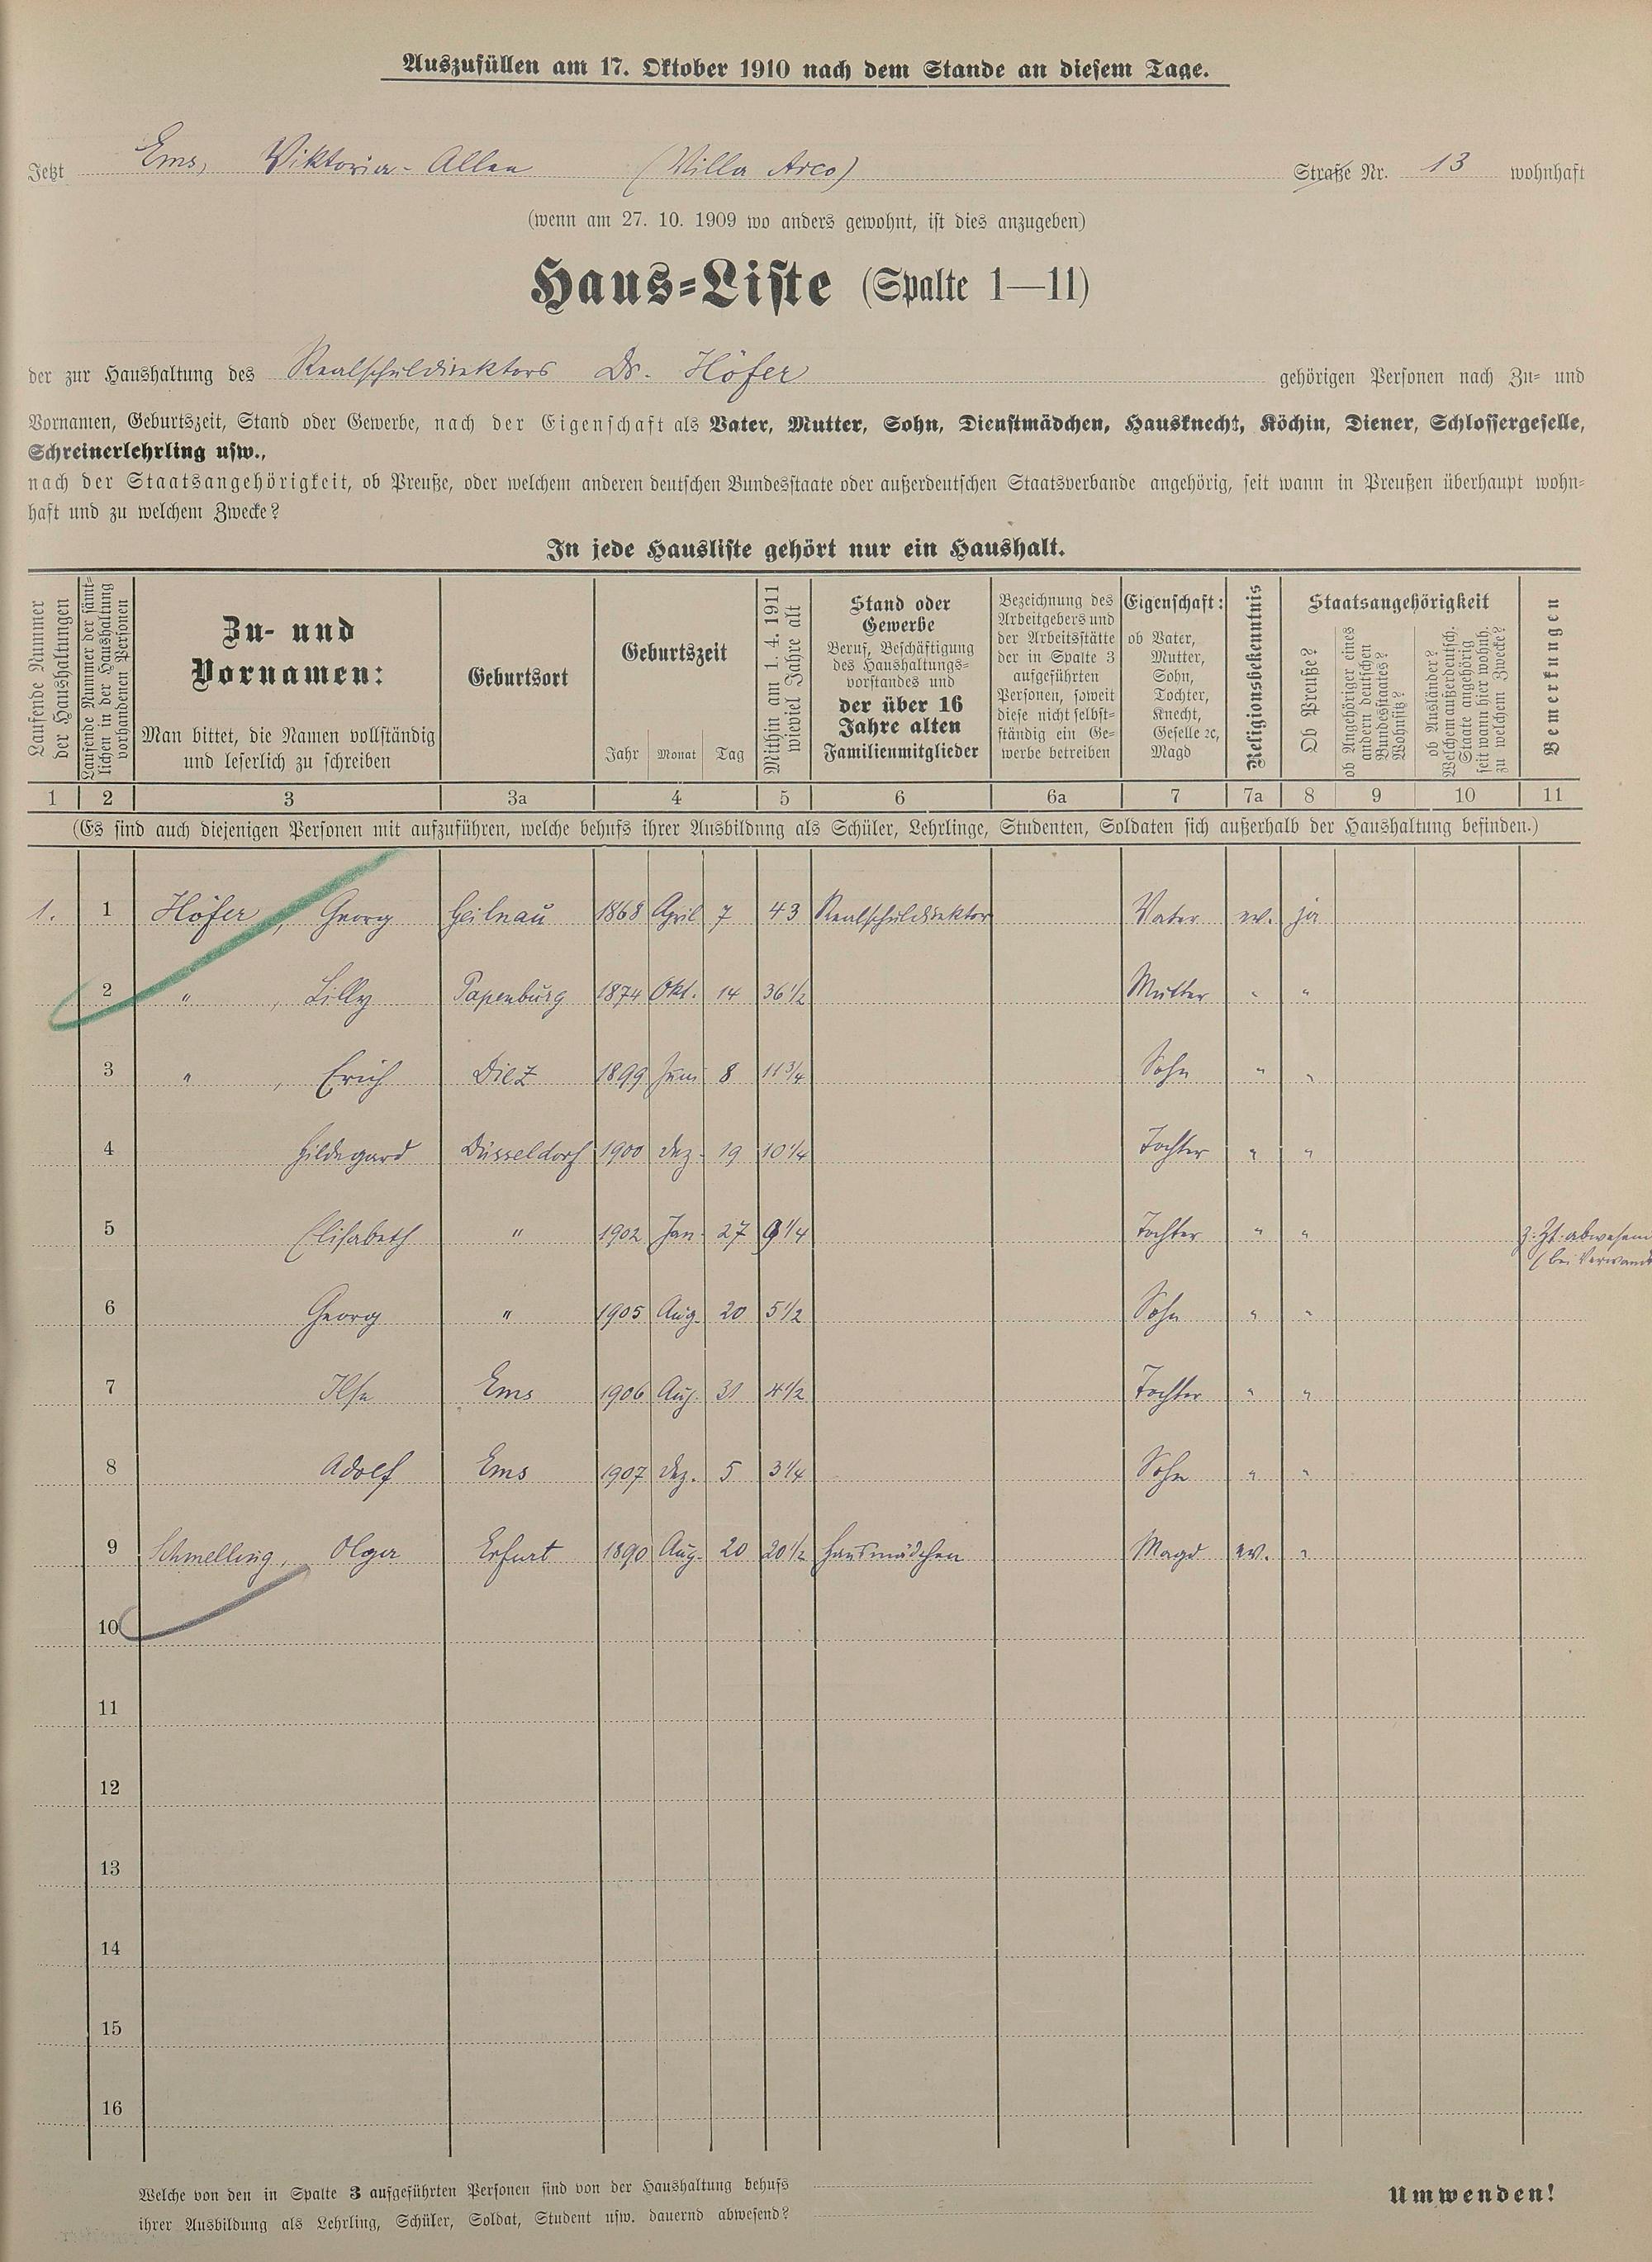 Auszufüllen am 17. Oktober 1910 nach dem Stande an diesem Tage.
Jetzt Ems, Viktoria-Allee (Villa Arco) Straße Nr. 13 wohnhaft
(wenn am 27. 10. 1909 wo anders gewohnt, ist dies anzugeben)
Haus-Liste (Spalte 1—11)
der zur Haushaltung des Realschuldirektors Dr. Höfer gehörigen Personen nach Zu- und
Vornamen, Geburtszeit, Stand oder Gewerbe, nach der Eigenschaft als Vater, Mutter, Sohn, Dienstmädchen, Hausknecht, Köchin, Diener, Schlossergeselle,
Schreinerlehrling usw.,
nach der Staatsangehörigkeit, ob Preuße, oder welchem anderen deutschen Bundesstaate oder außerdeutschen Staatsverbande angehörig, seit wann in Preußen überhaupt wohn-
haft und zu welchem Zwecke?
In jede Hausliste gehört nur ein Haushalt.
Laufende Nummer
der Haushaltungen
Laufende Nummer der sämt-
lichen in der Haushaltung
vorhandenen Personen
Zu- und
Vornamen:
Man bittet, die Namen vollständig
und leserlich zu schreiben
Geburtsort
Geburtszeit
Jahr Monat Tag
Mithin am 1. 4. 1911
wieviel Jahre alt
Stand oder
Gewerbe
Beruf, Beschäftigung
des Haushaltungs-
vorstandes und
der über 16
Jahre alten
Familienmitglieder
Bezeichnung des
Arbeitgebers und
der Arbeitsstätte
der in Spalte 3
aufgeführten
Personen, soweit
diese nicht selbst-
ständig ein Ge-
werbe betreiben
Eigenschaft:
ob Vater,
Mutter,
Sohn,
Tochter,
Knecht,
Geselle ꝛc,
Magd
Religionsbekenntnis
Staatsangehörigkeit
Ob Preuße?
ob Angehöriger eines
andern deutschen
Bundesstaates?
Wohnsitz?
ob Ausländer?
Welchem außerdeutsch.
Staate angehörig
seit wann hier wohnh.
zu welchem Zwecke?
Bemerkungen
1 2 3 3a 4 5 6 6a 7 7a 8 9 10 11
(Es sind auch diejenigen Personen mit aufzuführen, welche behufs ihrer Ausbildung als Schüler, Lehrlinge, Studenten, Soldaten sich außerhalb der Haushaltung befinden.)
1. 1 Höfer, Georg Geilnau 1868 April 7 43 Realschuldirektor Vater ev. ja
2 " , Lilly Papenburg 1874 Okt. 14 36 1/2 Mutter " "
3 " , Erich Diez 1899 Juni 8 11 3/4 Sohn " "
4 Hildegard Düsseldorf 1900 Dez. 19 10 1/4 Tochter " "
5 Elisabeth " 1902 Jan. 27 9 1/4 Tochter " " z. Zt. abwesend
(bei Verwandt
6 Georg " 1905 Aug. 20 5 1/2 Sohn " "
7 Ilse Ems 1906 Aug. 31 4 1/2 Tochter " "
8 Adolf Ems 1907 Dez. 5 3 1/4 Sohn " "
9 Schmelling, Olga Erfurt 1890 Aug. 20 20 1/2 Hausmädchen Magd ev. "
10
11
12
13
14
15
16
Welche von den in Spalte 3 aufgeführten Personen sind von der Haushaltung behufs
ihrer Ausbildung als Lehrling, Schüler, Soldat, Student usw. dauernd abwesend?
Umwenden!